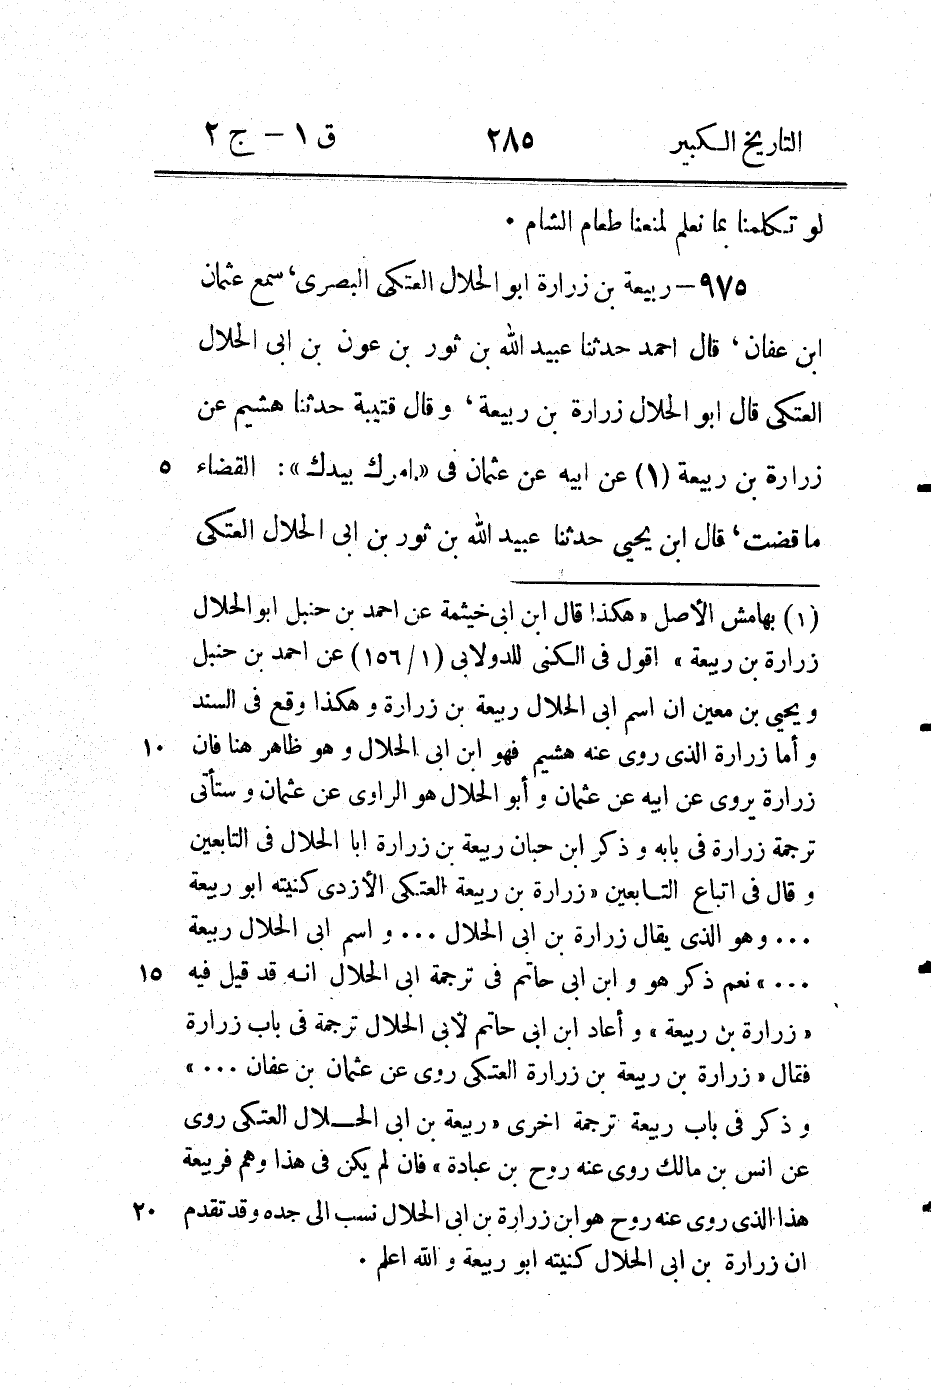 التاريخ الكبير ٢٨٥ ق ١ – ج ٢
لو تكلمنا بما نعلم لمنعنا طعام الشام ٠
٩٧٥ – ربيعة بن زرارة ابو الحلال العتكى البصرى، سمع عثمان
ابن عفان، قال احمد حدثنا عبيد الله بن ثور بن عون بن ابى الحلال
العتكى قال ابو الحلال زرارة بن ربيعة، و قال قتيبة حدثنا هشيم عن
زرارة بن ربيعة (١) عن ابيه عن عثمان فى «امرك بيدك»: القضاء ٥
ما قضت، قال ابن يحيى حدثنا عبيد الله بن ثور بن ابى الحلال العتكى
(١) بهامش الأصل «هكذا قال ابن ابى خيثمة عن احمد بن حنبل ابو الحلال
زرارة بن ربيعة» اقول فى الكنى للدولابى (١/١٥٦) عن احمد بن حنبل
و يحيى بن معين ان اسم ابى الحلال ربيعة بن زرارة و هكذا وقع فى السند
و أما زرارة الذى روى عنه هشيم فهو ابن ابى الحلال و هو ظاهر هنا فان ١٠
زرارة يروى عن ابيه عن عثمان و أبو الحلال هو الراوى عن عثمان و ستأتى
ترجمة زرارة فى بابه و ذكر ابن حبان ربيعة بن زرارة ابا الحلال فى التابعين
و قال فى اتباع التابعين «زرارة بن ربيعة العتكى الأزدى كنيته ابو ربيعة
... و هو الذى يقال زرارة بن ابى الحلال ... و اسم ابى الحلال ربيعة
...» نعم ذكر هو و ابن ابى حاتم فى ترجمة ابى الحلال انه قد قيل فيه ١٥
«زرارة بن ربيعة» و أعاد ابن ابى حاتم لأبى الحلال ترجمة فى باب زرارة
فقال «زرارة بن ربيعة بن زرارة العتكى روى عن عثمان بن عفان ...»
و ذكر فى باب ربيعة ترجمة اخرى «ربيعة بن ابى الحلال العتكى روى
عن انس بن مالك روى عنه روح بن عبادة» فان لم يكن فى هذا وهم فربيعة
هذا الذى روى عنه روح هو ابن زرارة بن ابى الحلال نسب الى جده و قد تقدم ٢٠
ان زرارة بن ابى الحلال كنيته ابو ربيعة و الله اعلم ٠